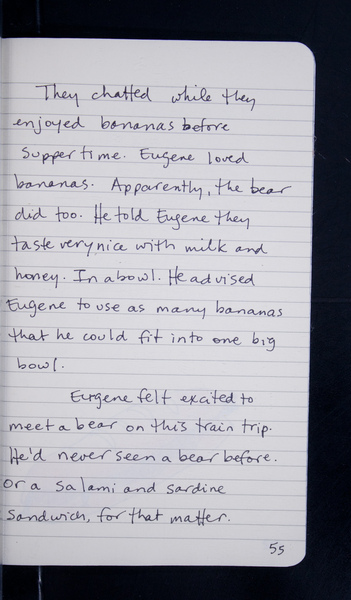 They chatted while they
enjoyed bananas before
supper time. Eugene loved
bananas. Apparently, the bear
did too. He told Eugene they
taste very nice with milk and
honey. In a bowl. He advised
Eugene to use as many bananas
that he could fit into one big
bowl.
Eugene felt excited to
meet a bear on this train trip.
He'd never seen a bear before.
Or a salami and sardine
sandwich, for that matter.
55